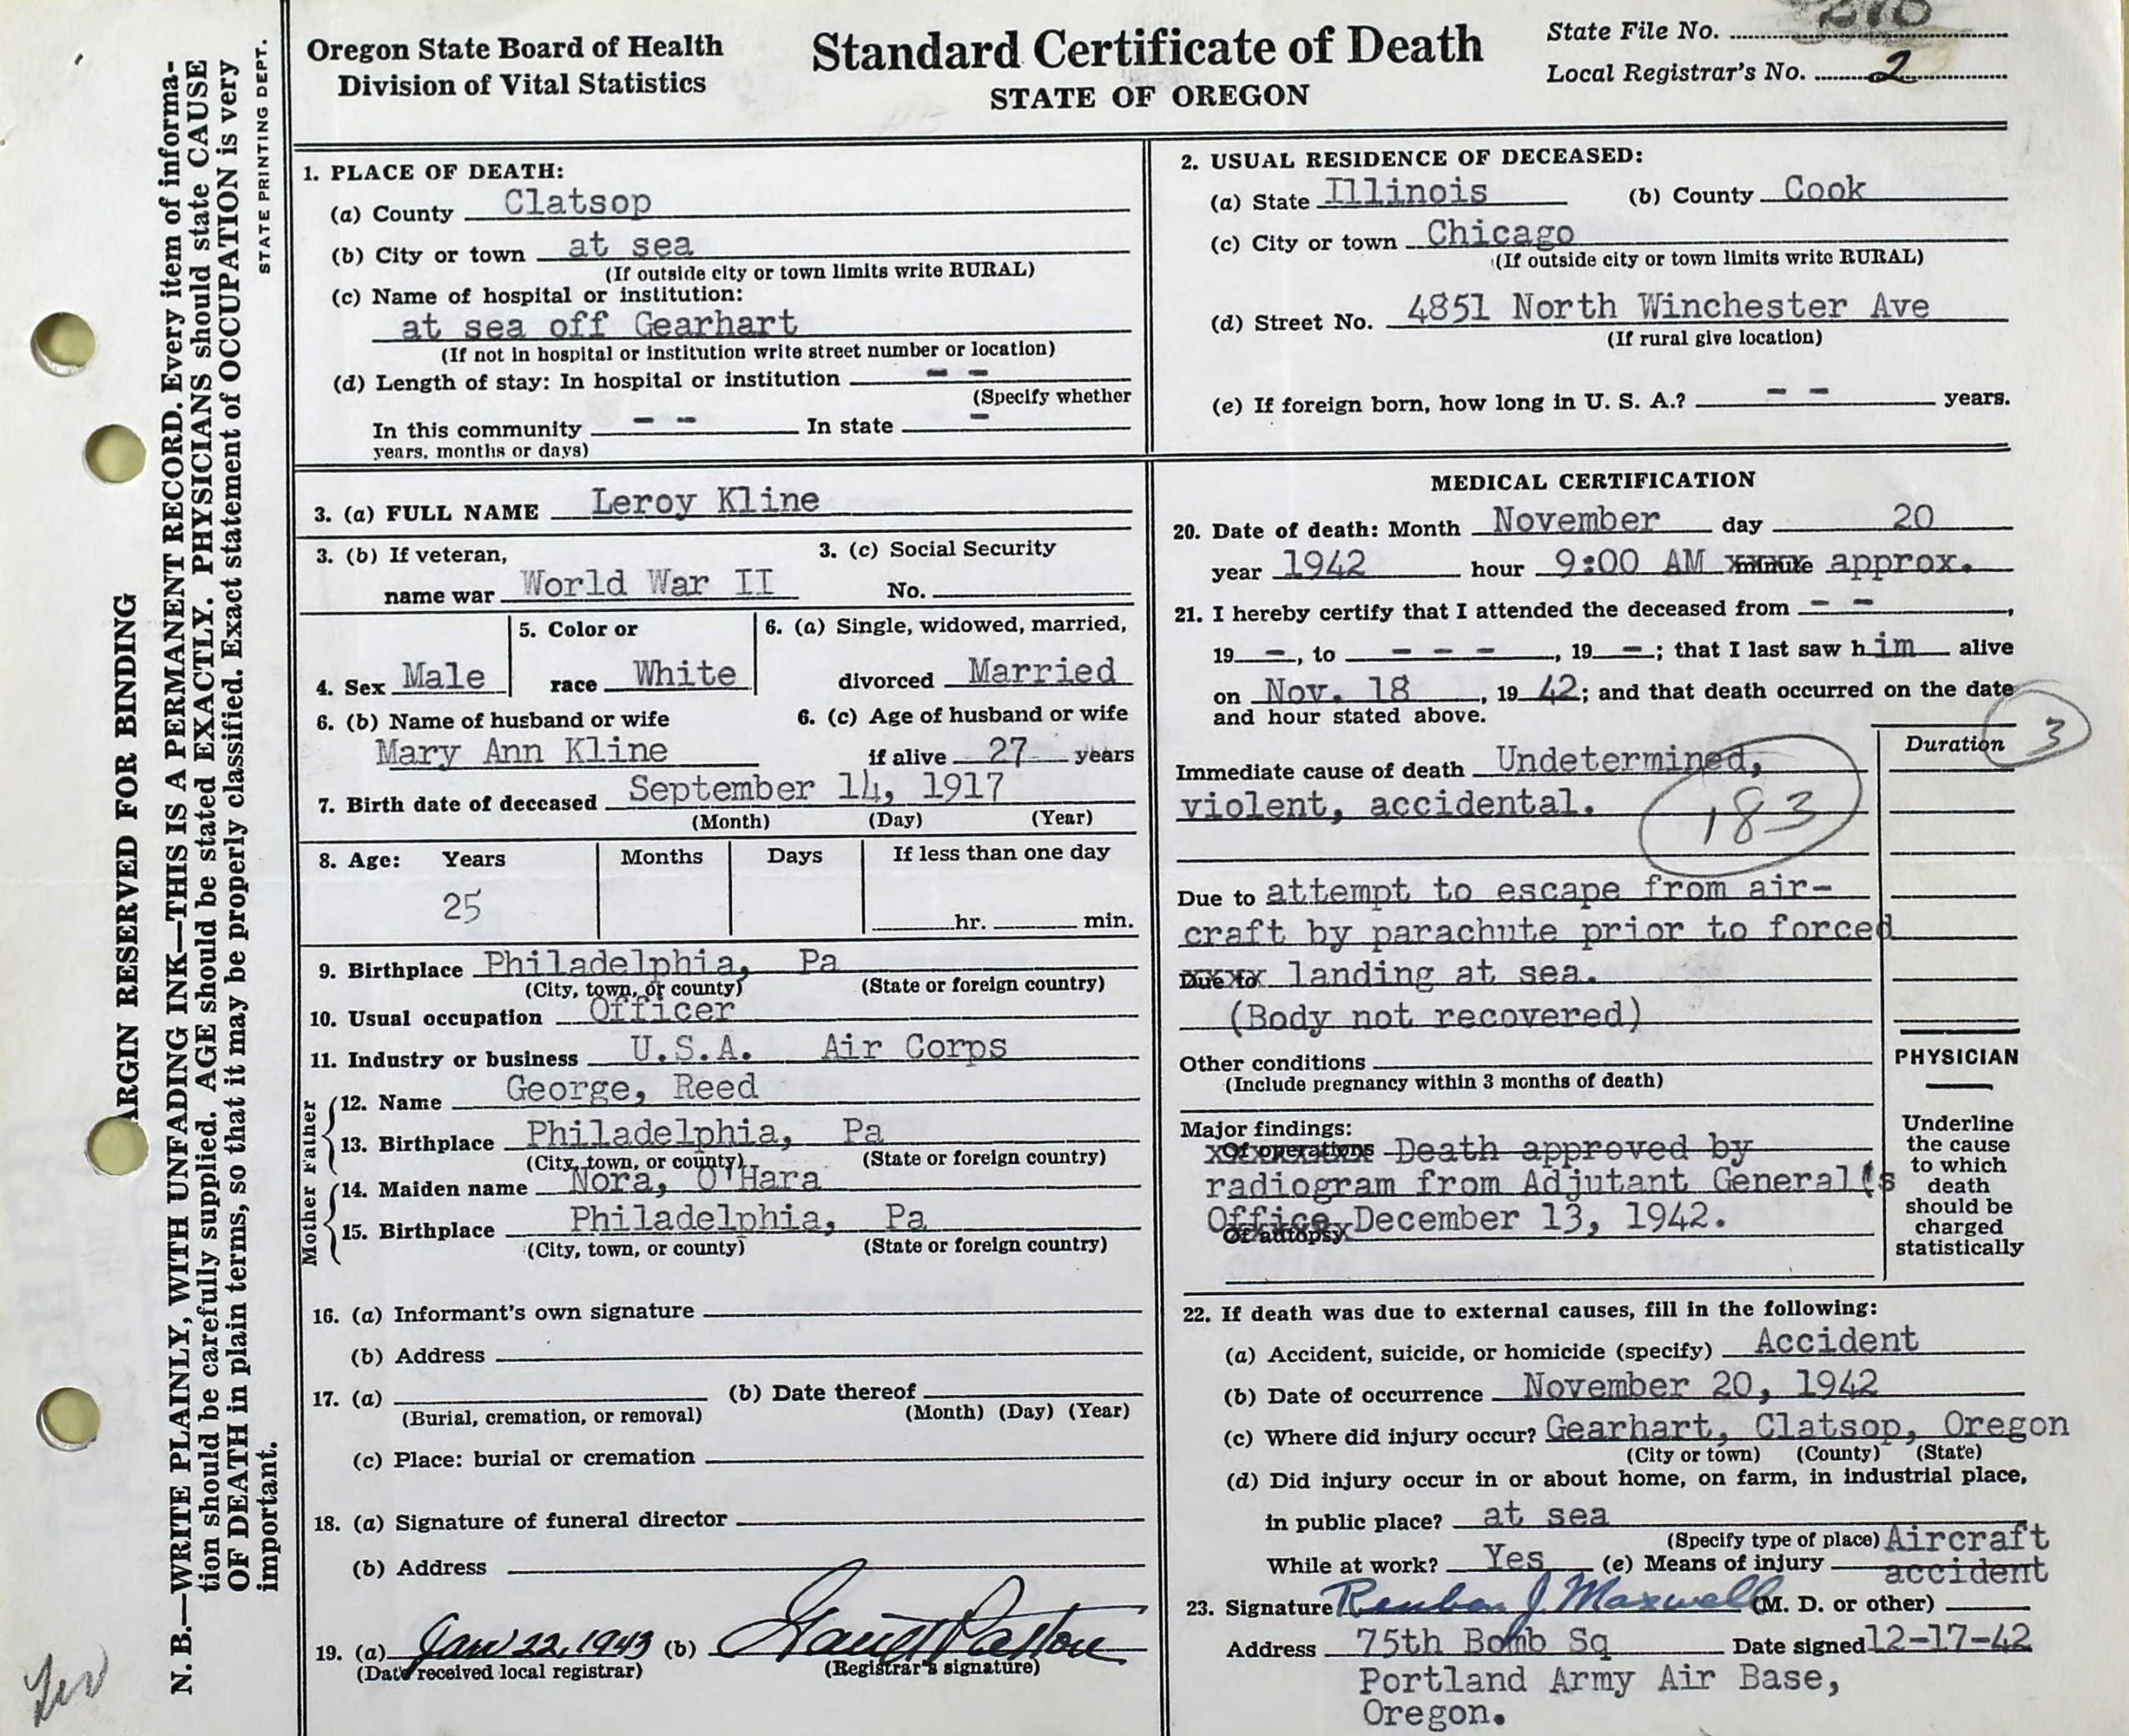 Oregon State Board of Health
Division of Vital Statistics
Standard Certificate of Death
STATE OF OREGON
State File No.
Local Registrar's No. 2
MARGIN RESERVED FOR BINDING
N. B.—WRITE PLAINLY, WITH UNFADING INK—THIS IS A PERMANENT RECORD. Every item of informa-
tion should be carefully supplied. AGE should be stated EXACTLY. PHYSICIANS should state CAUSE
OF DEATH in plain terms, so that it may be properly classified. Exact statement of OCCUPATION is very
important.
STATE PRINTING DEPT.
1. PLACE OF DEATH:
(a) County Clatsop
(b) City or town at sea
(If outside city or town limits write RURAL)
(c) Name of hospital or institution:
at sea off Gearhart
(If not in hospital or institution write street number or location)
(d) Length of stay: In hospital or institution – –
(Specify whether
In this community – – In state –
years, months or days)
2. USUAL RESIDENCE OF DECEASED:
(a) State Illinois (b) County Cook
(c) City or town Chicago
(If outside city or town limits write RURAL)
(d) Street No. 4851 North Winchester Ave
(If rural give location)
(e) If foreign born, how long in U. S. A.? – – years.
3. (a) FULL NAME Leroy Kline
3. (b) If veteran, 3. (c) Social Security
name war World War II No.
5. Color or 6. (a) Single, widowed, married,
4. Sex Male race White divorced Married
6. (b) Name of husband or wife 6. (c) Age of husband or wife
Mary Ann Kline if alive 27 years
7. Birth date of deceased September 14, 1917
(Month) (Day) (Year)
8. Age: Years Months Days If less than one day
25 hr. min.
9. Birthplace Philadelphia, Pa
(City, town, or county) (State or foreign country)
10. Usual occupation Officer
11. Industry or business U.S.A. Air Corps
Father
12. Name George, Reed
13. Birthplace Philadelphia, Pa
(City, town, or county) (State or foreign country)
Mother
14. Maiden name Nora, O'Hara
15. Birthplace Philadelphia, Pa
(City, town, or county) (State or foreign country)
16. (a) Informant's own signature
(b) Address
17. (a) (b) Date thereof
(Burial, cremation, or removal) (Month) (Day) (Year)
(c) Place: burial or cremation
18. (a) Signature of funeral director
(b) Address
19. (a) Jan 22, 1943 (b)
(Date received local registrar) (Registrar's signature)
MEDICAL CERTIFICATION
20. Date of death: Month November day 20
year 1942 hour 9:00 AM minute approx.
21. I hereby certify that I attended the deceased from – –,
19 –, to – – –, 19 –; that I last saw him alive
on Nov. 18, 1942; and that death occurred on the date
and hour stated above.
3
Duration
Immediate cause of death Undetermined,
violent, accidental.
183
Due to attempt to escape from air-
craft by parachute prior to forced
Due to landing at sea.
(Body not recovered)
Other conditions
(Include pregnancy within 3 months of death)
PHYSICIAN
Underline
the cause
to which
death
should be
charged
statistically
Major findings:
Of operations Death approved by
radiogram from Adjutant General's
Office, December 13, 1942.
Of autopsy
22. If death was due to external causes, fill in the following:
(a) Accident, suicide, or homicide (specify) Accident
(b) Date of occurrence November 20, 1942
(c) Where did injury occur? Gearhart, Clatsop, Oregon
(City or town) (County) (State)
(d) Did injury occur in or about home, on farm, in industrial place,
in public place? at sea
(Specify type of place) Aircraft
While at work? Yes (e) Means of injury accident
23. Signature Reuben J. Maxwell (M. D. or other)
Address 75th Bomb Sq Date signed 12-17-42
Portland Army Air Base,
Oregon.